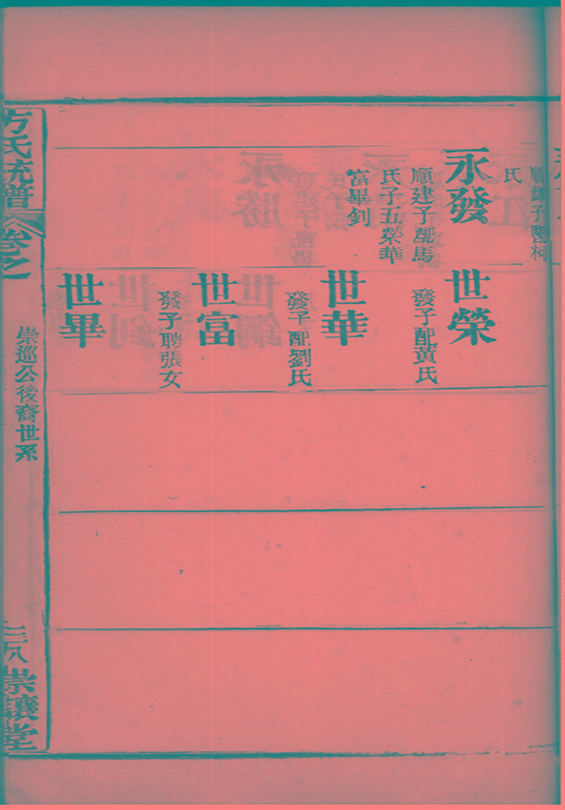 順譯子聘柯
氏
永發
順建子配馬
氏子五榮華
富畢釗
世榮
發子配黃氏
世華
發子配劉氏
世富
發子聘張女
世畢
方氏統譜
卷之
崇巡公後裔世系
崇讓堂